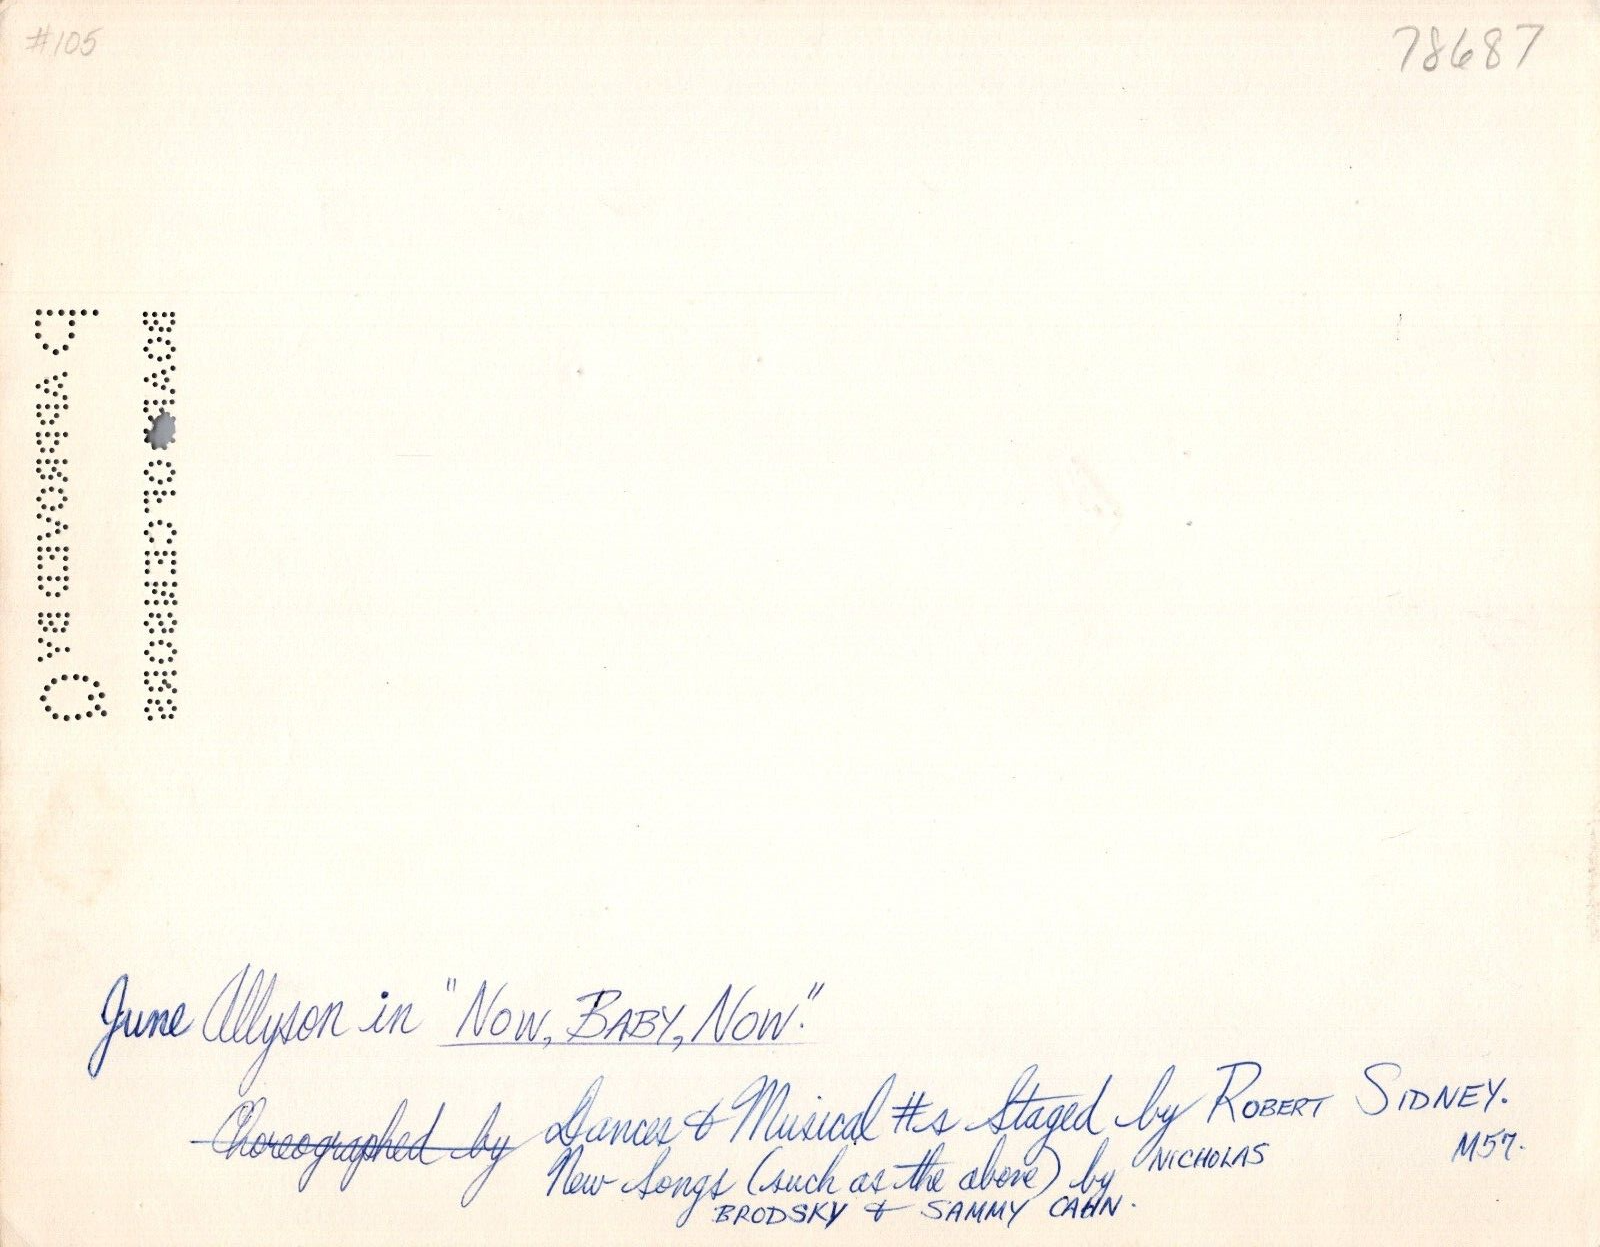 #105
78687
P APPROVED BY Q
BOARD OF CENSORS
June Allyson in "NOW, BABY, NOW."
Choreographed by Dances & Musical #s Staged by ROBERT SIDNEY.
New Songs (such as the above) by NICHOLAS
BRODSKY & SAMMY CAHN.
M57.